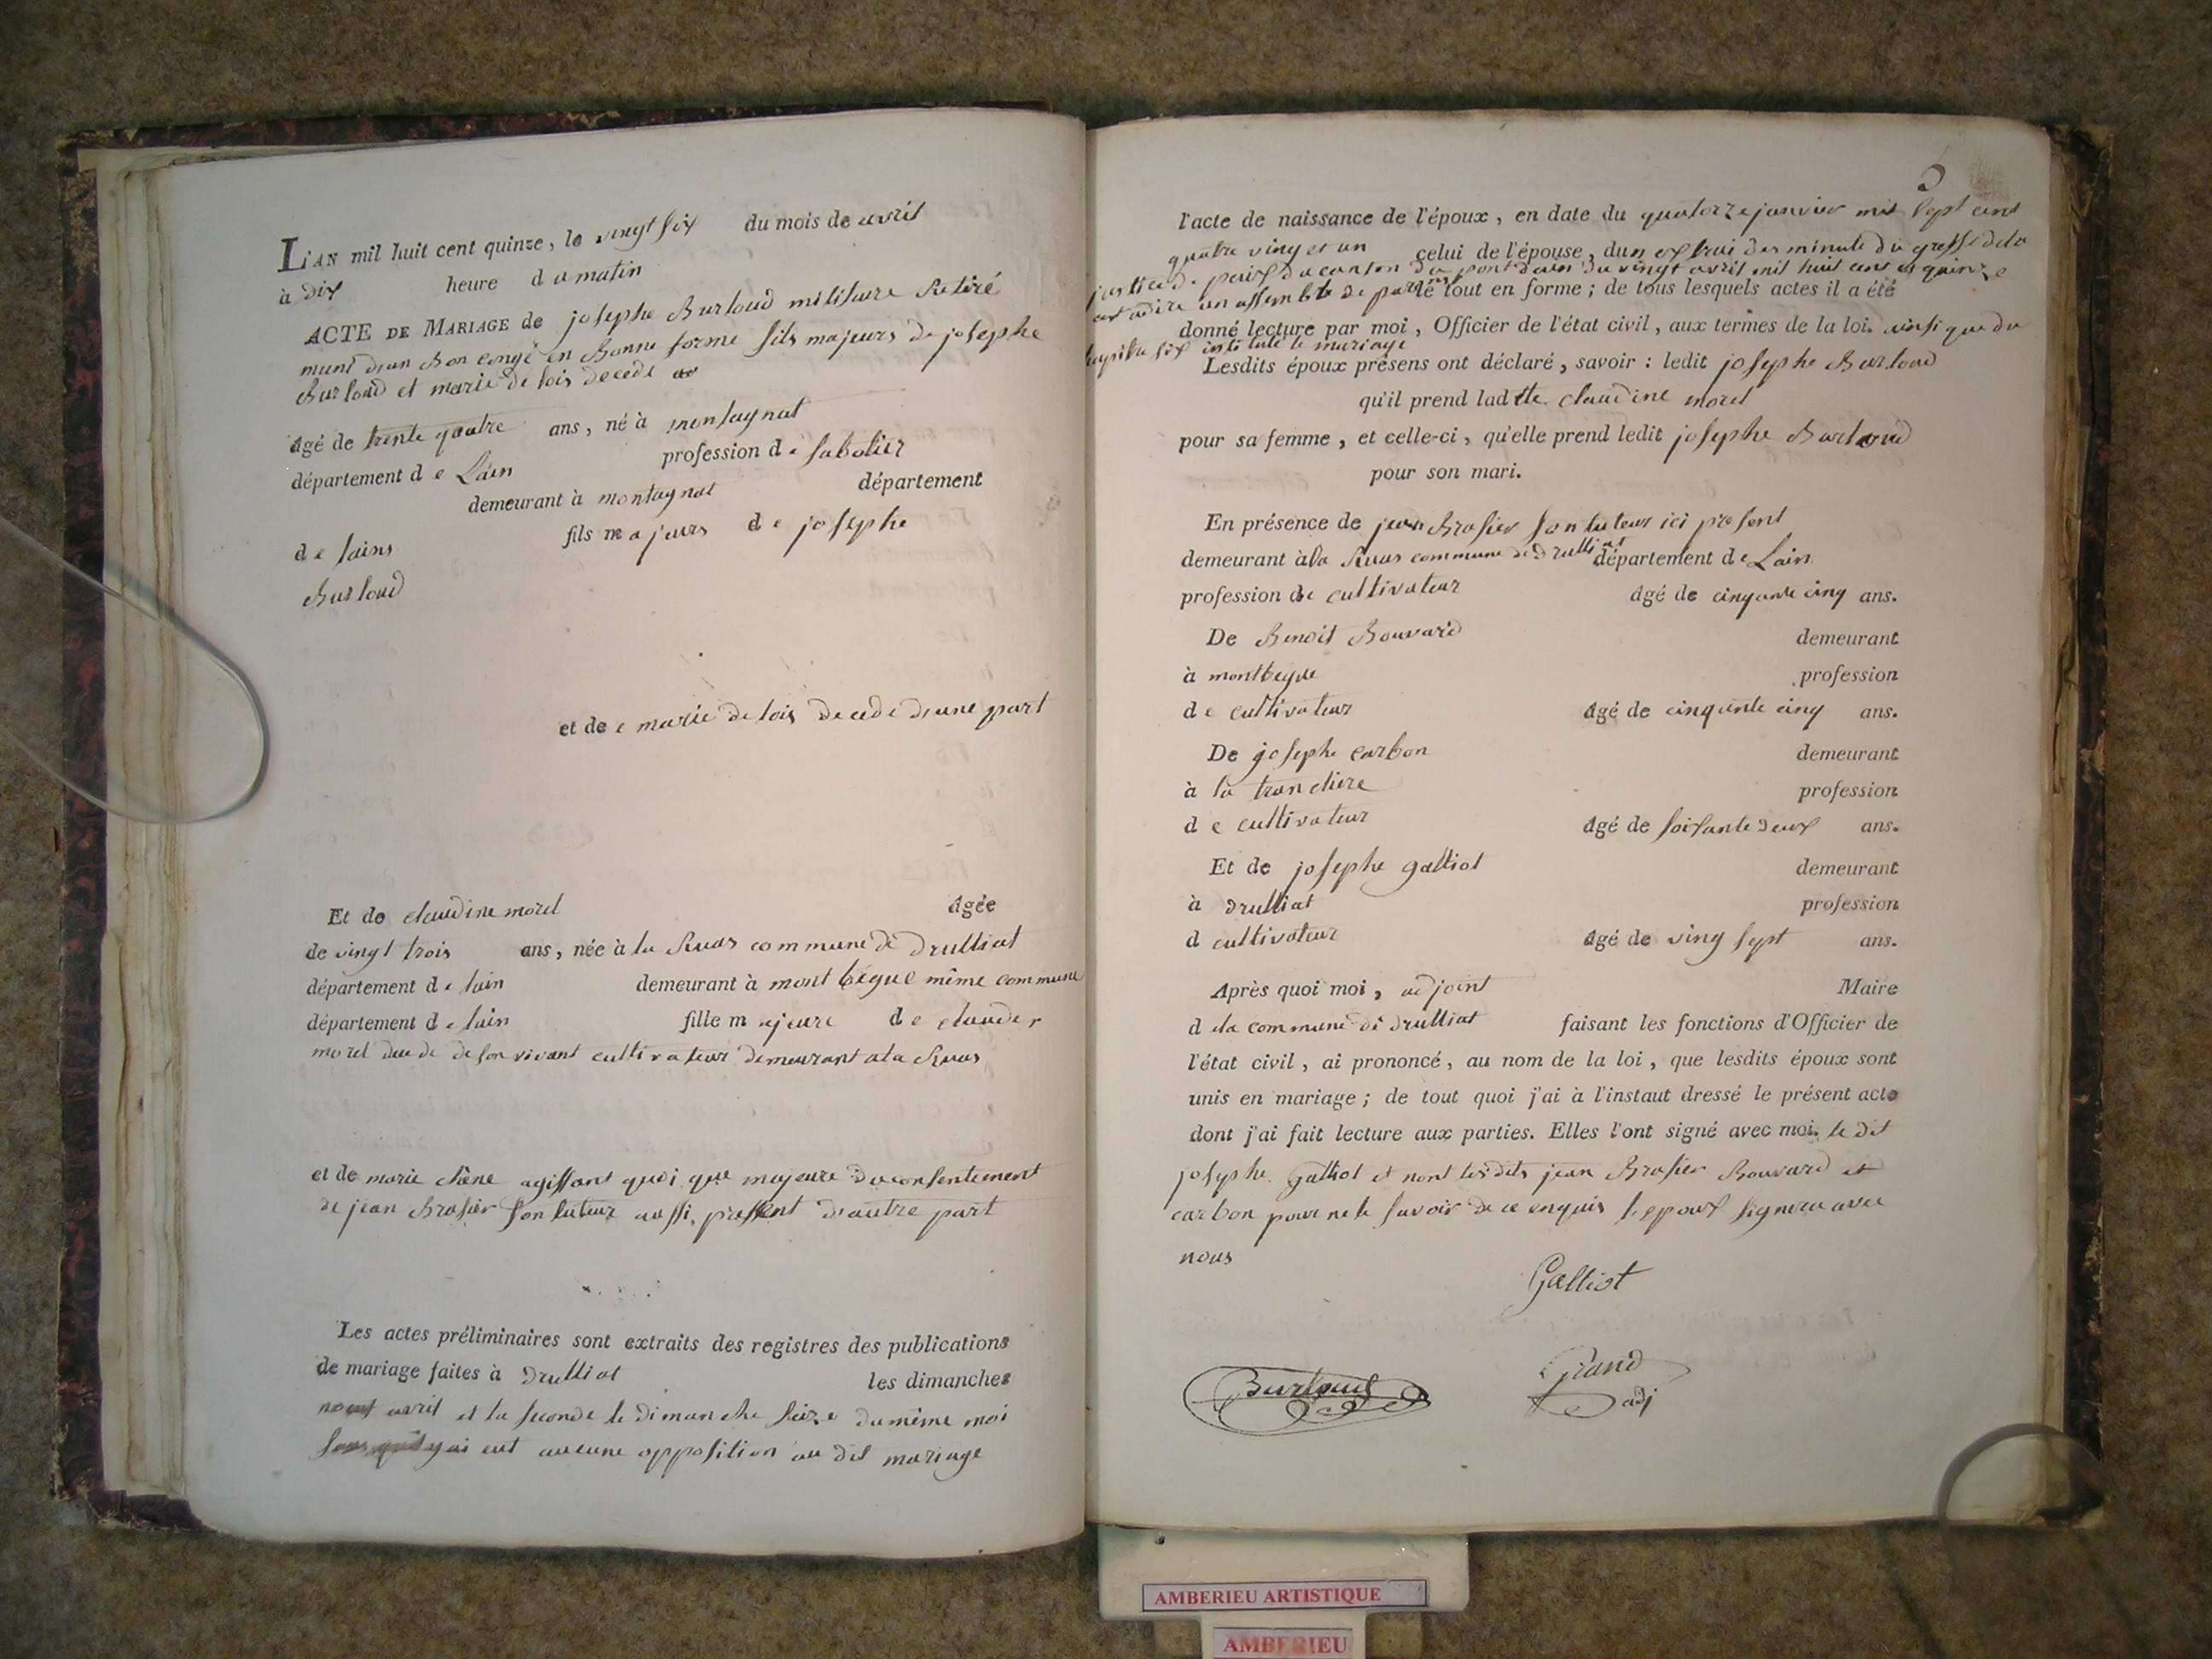 L'AN mil huit cent quinze, le vingt six du mois de avril
à dix heure d u matin
ACTE DE MARIAGE de josephe Burloud militaire Retiré
muni d'un Bon congé en Bonne forme fils majeurs de josephe
Burloud et marie de lois decede
âgé de trente quatre ans, né à montagnat
département d e Lain profession d e sabotier
demeurant à montagnat département
d e lains fils m ajeurs d e josephe
Burloud
et de e marie de lois decede d'une part
Et de claudine morel âgée
de vingt trois ans, née à la Ruas commune de Drulliat
département d e lain demeurant à mont bègue même commune
département d e lain fille m ajeure d e claude
morel de son vivant cultivateur demeurant a la Ruas
et de marie chêne agissant quoi que majeure du consentement
de jean Brasier son tuteur aussi present d'autre part
Les actes préliminaires sont extraits des registres des publications
de mariage faites à Drulliat les dimanches
neuf avril et la seconde le dimanche seize du même moi
eut aucune opposition au dit mariage
l'acte de naissance de l'époux, en date du quatorze janvier mil sept cent
quatre ving et un celui de l'épouse, dun extrai des minute du greffe de la
justice de paix du canton du pont dain du vingt avril mil huit cent quinze
un assemblé de le tout en forme; de tous lesquels actes il a été
donné lecture par moi, Officier de l'état civil, aux termes de la loi. ainsi que du
six intitulé le mariage
Lesdits époux présens ont déclaré, savoir: ledit josephe Burloud
qu'il prend ladtte claudine morel
pour sa femme, et celle-ci, qu'elle prend ledit josephe Burloud
pour son mari.
En présence de jean Brasier son tuteur ici present
demeurant à la Ruas commune de Drulliat département d e Lain
profession de cultivateur âgé de cinquante cinq ans.
De Benoit Bouvard demeurant
à montbegue profession
d e cultivateur âgé de cinquante cinq ans.
De josephe carbon demeurant
à la tranchere profession
d e cultivateur âgé de soixante deux ans.
Et de josephe galliot demeurant
à drulliat profession
d cultivateur âgé de ving sept ans.
Après quoi moi, adjoint Maire
d ela commune de drulliat faisant les fonctions d'Officier de
l'état civil, ai prononcé, au nom de la loi, que lesdits époux sont
unis en mariage; de tout quoi j'ai à l'instaut dressé le présent acte
dont j'ai fait lecture aux parties. Elles l'ont signé avec moi. le dit
josephe galliot et nont lesdits jean Brasier Bouvard et
carbon pour ne le savoir de ce enquis lepoux signera avec
nous
Galliot
Burloud Grand
adj
AMBERIEU ARTISTIQUE
AMBERIEU